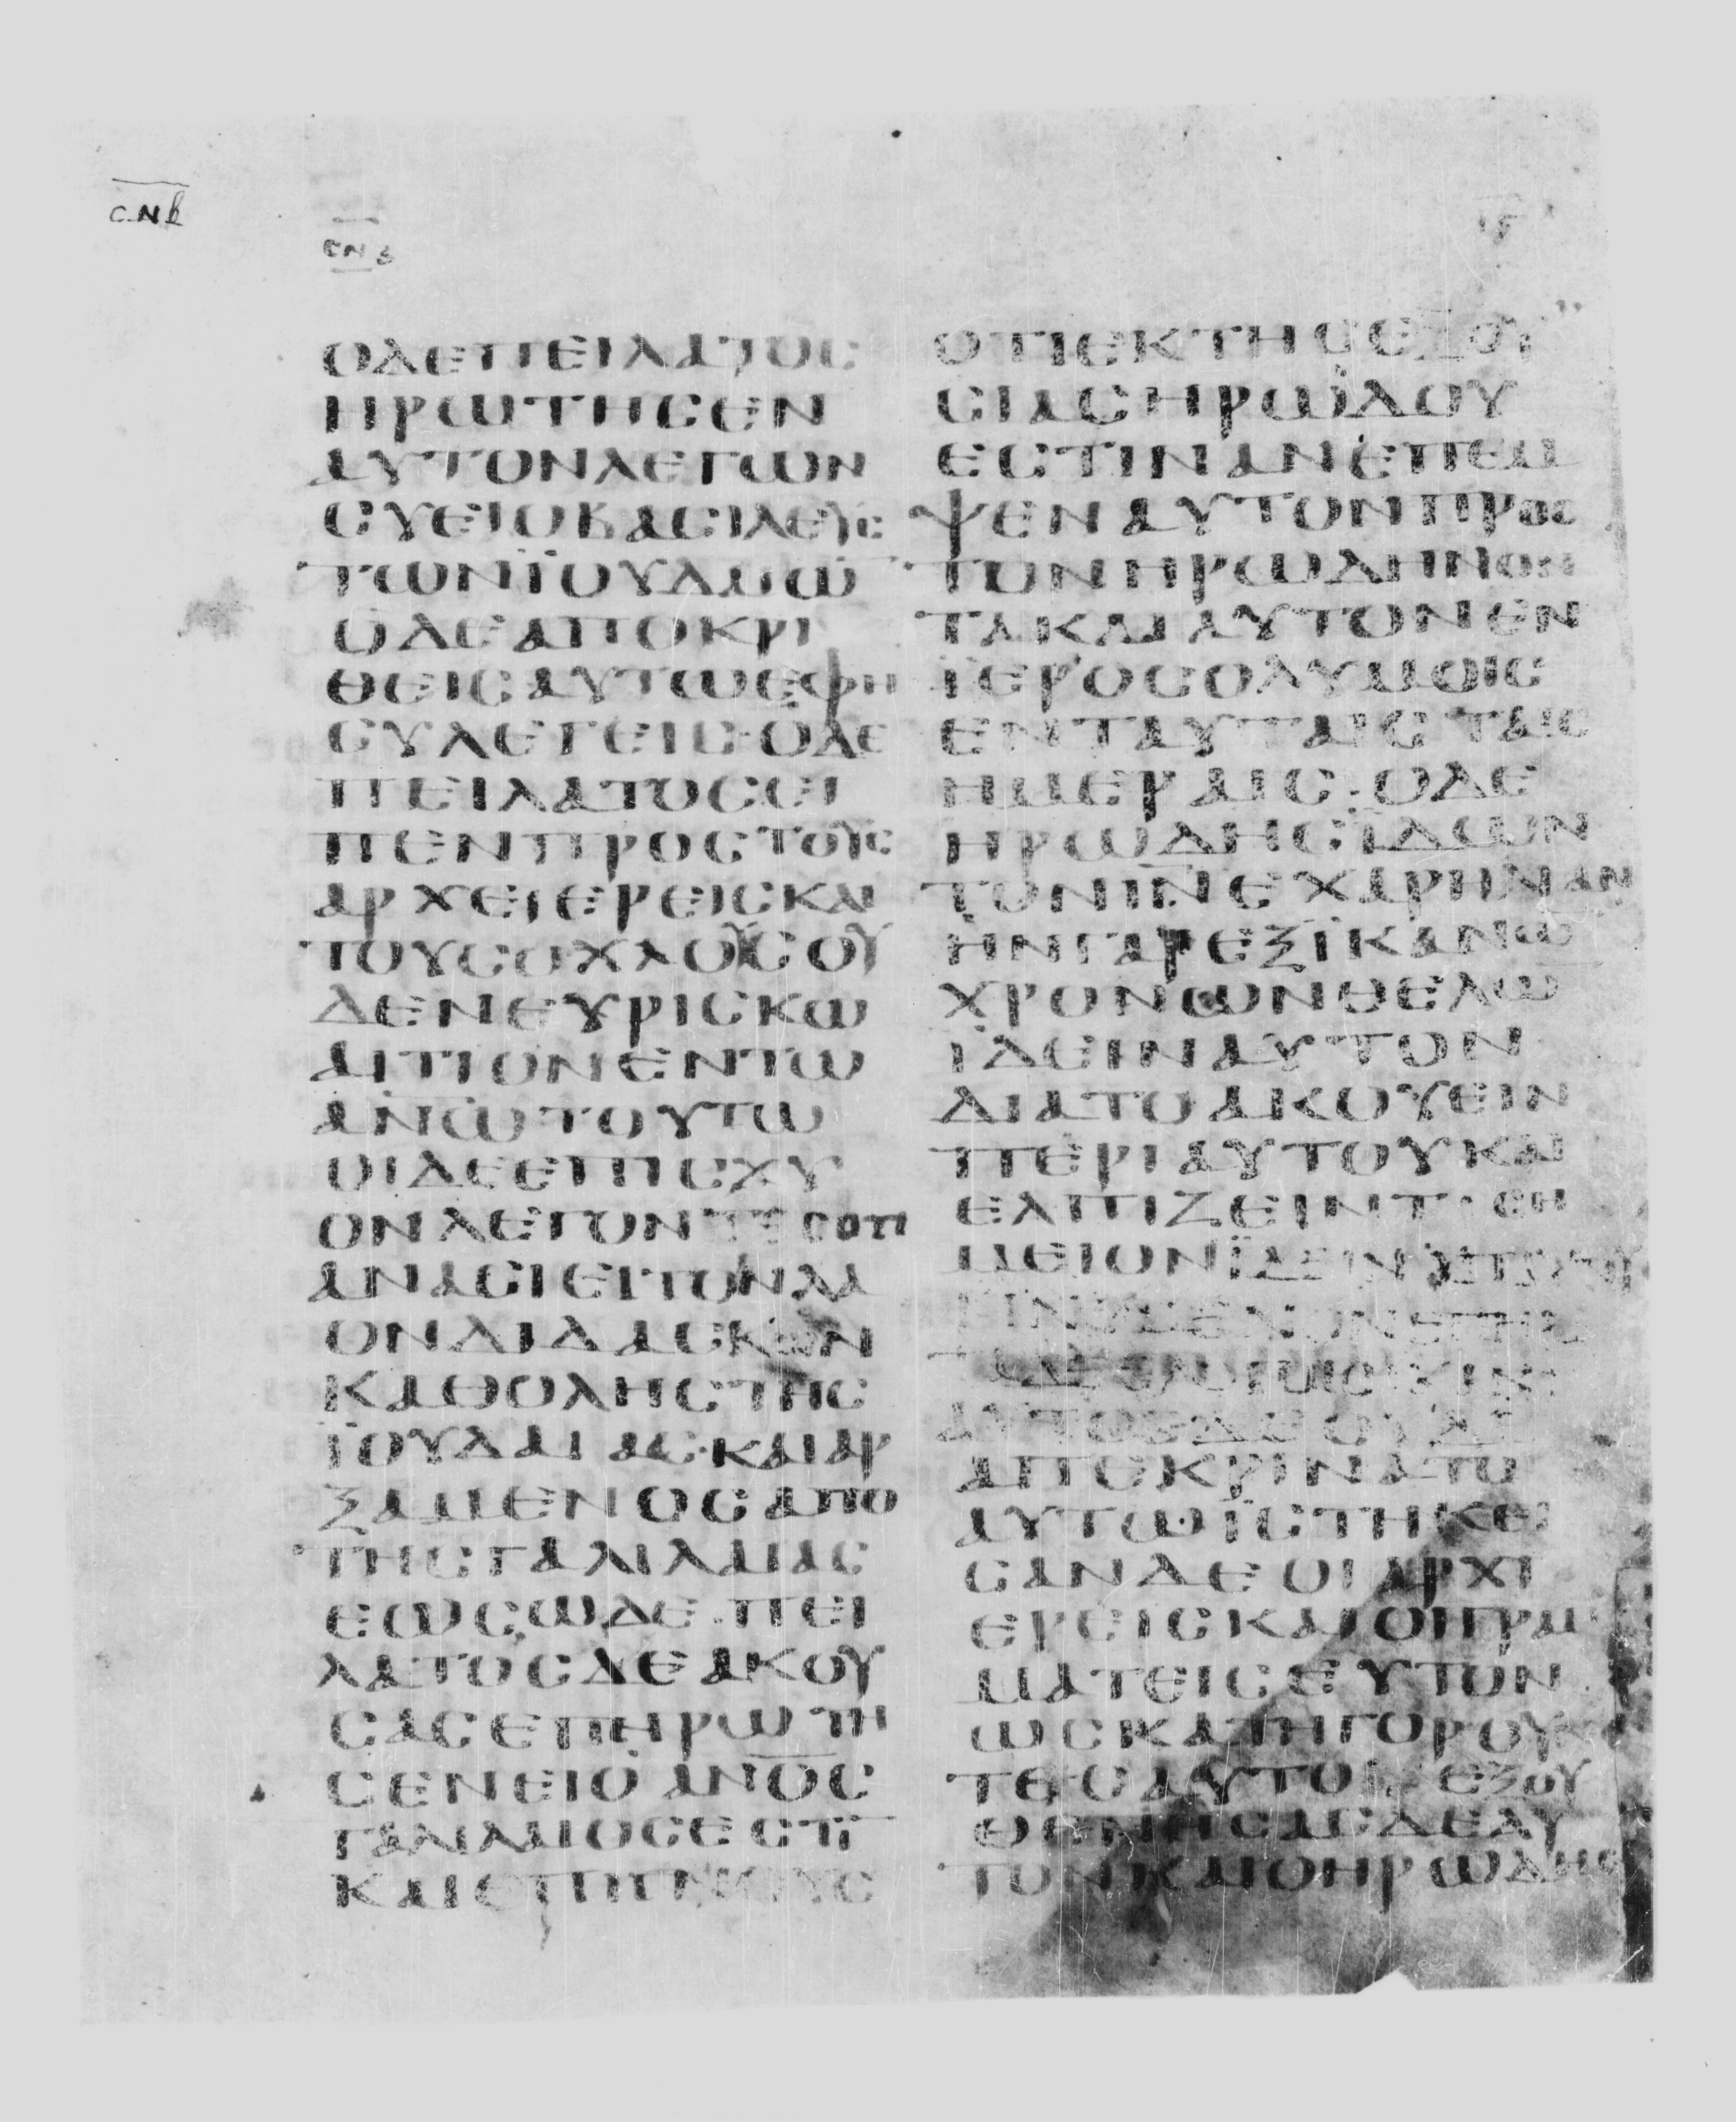 ⲤⲚⲂ
ⲤⲚⲂ
ΟΔΕΠΕΙΛΑΤΟϹ
ΗΡΩΤΗϹΕΝ
ΑΥΤΟΝΛΕΓΩΝ
ϹΥΕΙΟΒΑϹΙΛΕΥϹ
ΤΩΝΪΟΥΔΑΙΩ̅
ΟΔΕΑΠΟΚΡΙ
ΘΕΙϹΑΥΤΩΕΦΗ
ϹΥΛΕΓΕΙϹ·ΟΔΕ
ΠΕΙΛΑΤΟϹΕΙ
ΠΕΝΠΡΟϹΤΟΥϹ
ΑΡΧΕΙΕΡΕΙϹΚΑΙ
ΤΟΥϹΟΧΛΟΥϹΟΥ
ΔΕΝΕΥΡΙϹΚΩ
ΑΙΤΙΟΝΕΝΤΩ
Α̅Ν̅Ω̅ΤΟΥΤΩ
ΟΙΔΕΕΠΙϹΧΥ
ΟΝΛΕΓΟΝΤΕϹΟΤΙ
ΑΝΑϹΙΕΙΤΟΝΛΑ
ΟΝΔΙΔΑϹΚΩΝ
ΚΑΘΟΛΗϹΤΗϹ
ΪΟΥΔΑΙΑϹ·ΚΑΙΑΡ
ΞΑΜΕΝΟϹΑΠΟ
ΤΗϹΓΑΛΙΛΑΙΑϹ
ΕΩϹΩΔΕ·ΠΕΙ
ΛΑΤΟϹΔΕΑΚΟΥ
ϹΑϹΕΠΗΡΩΤΗ
ϹΕΝΕΙΟΑ̅Ν̅Ο̅Ϲ̅
ΓΑΛΙΛΑΙΟϹΕϹΤΙ̅
ΚΑΙΕΠΙΓΝΟΥϹ
ΟΤΙΕΚΤΗϹΕΞΟΥ
ϹΙΑϹΗΡΩΔΟΥ
ΕϹΤΙΝΑΝΕΠΕΜ
ΨΕΝΑΥΤΟΝΠΡΟϹ
ΤΟΝΗΡΩΔΗΝΟΝ
ΤΑΚΑΙΑΥΤΟΝΕΝ
ΪΕΡΟϹΟΛΥΜΟΙϹ
ΕΝΤΑΥΤΑΙϹΤΑΙϹ
ΗΜΕΡΑΙϹ·ΟΔΕ
ΗΡΩΔΗϹΪΔΩΝ
ΤΟΝΙ̅Ν̅ΕΧΑΡΗΛΙΑΝ
ΗΝΓΑΡΕΞΪΚΑΝΩ̅
ΧΡΟΝΩΝΘΕΛΩ̅
ΪΔΕΙΝΑΥΤΟΝ
ΔΙΑΤΟΑΚΟΥΕΙΝ
ΠΕΡΙΑΥΤΟΥΚΑΙ
ΕΛΠΙΖΕΙΝΤΙϹΗ
ΜΕΙΟΝΪΔΕΙΝΥΠΑΥΤΟΥ
ΑΥΤΟϹΔΕΟΥΔΕ
ΑΠΕΚΡΙΝΑΤΟ
ΑΥΤΩ·ΪϹΤΗΚΕΙ
ϹΑΝΔΕΟΙΑΡΧΙ
ΕΡΕΙϹΚΑΙΟΙΓΡΑΜ
ΜΑΤΕΙϹΕΥΤΟΝ
ΩϹΚΑΤΗΓΟΡΟΥΝ
ΤΕϹΑΥΤΟΥΕΞΟΥ
ΘΕΝΗϹΑϹΔΕΑΥ
ΤΟΝΚΑΙΟΗΡΩΔΗϹ